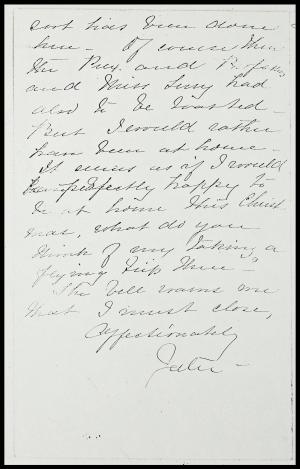 sort has been done
here - Of course then
the Prex. and Profs
and Miss Lucy had
also to be toasted -
But I would rather
have been at home -
It seems as if I would
be perfectly happy to
be at home this Christ
mas, what do you
think of my taking a
flying trip there -
The bell warns me
that I must close,
Affectionately